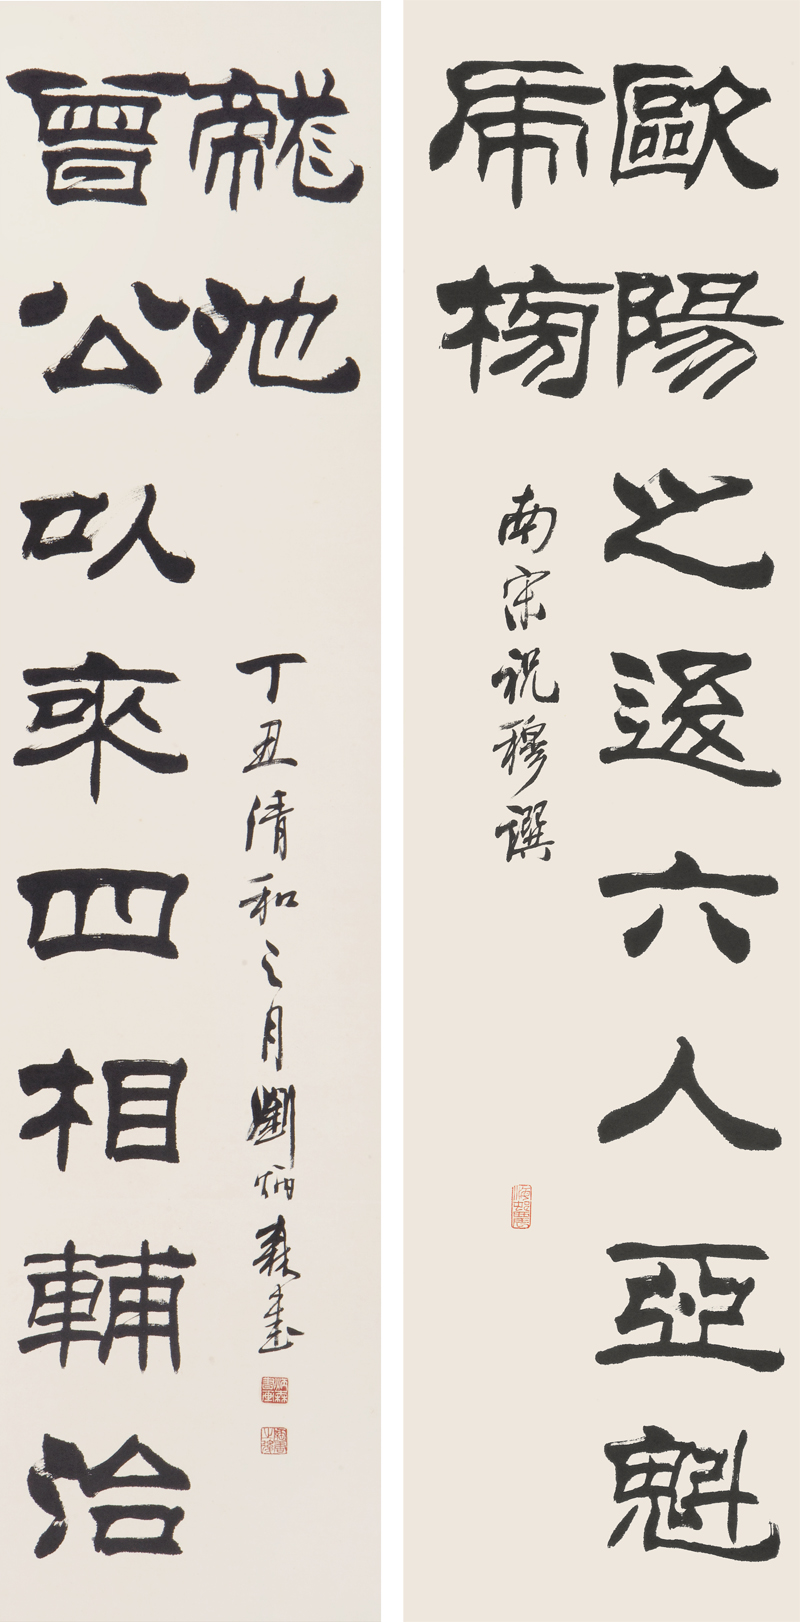 歐陽之後六人亞魁
虎榜
南宋祝穆譔
曾公以來四相輔治
龍池
丁丑清和之月劉炳森書